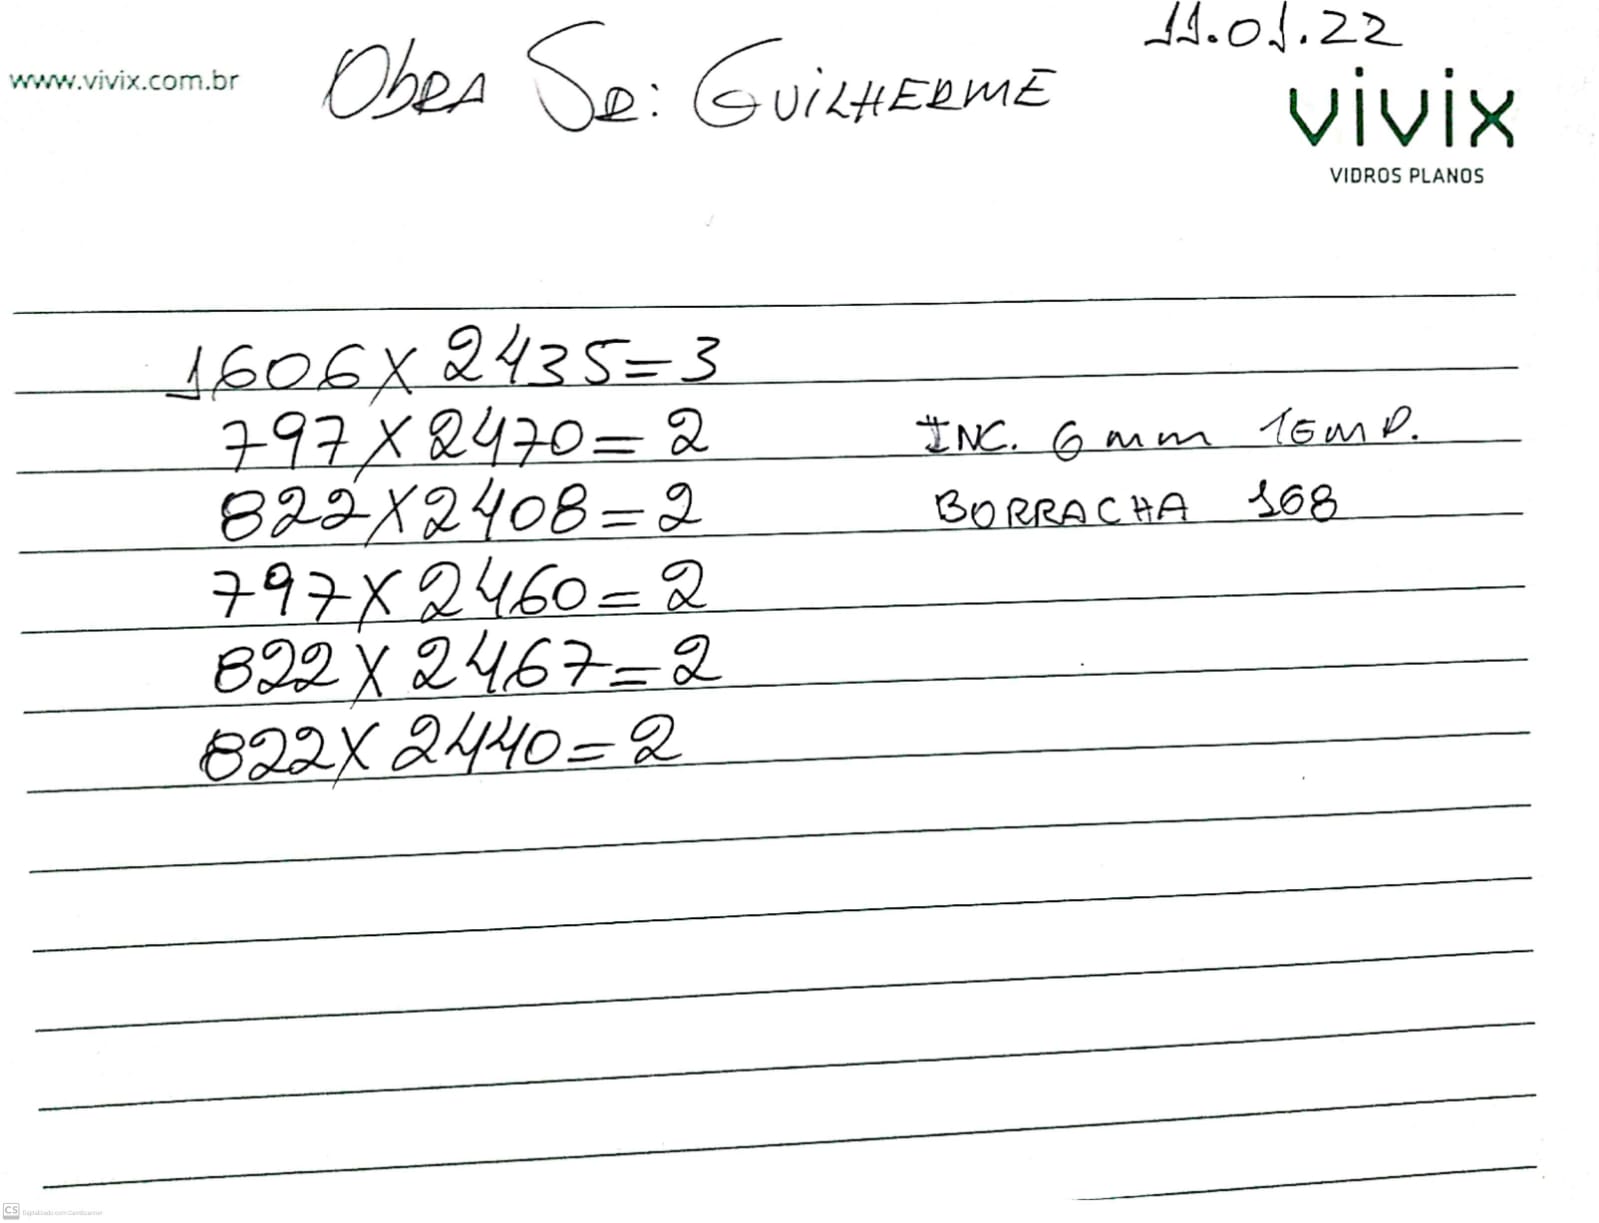 11.01.22
www.vivix.com.br
Obra Sr: Guilherme
vivix
VIDROS PLANOS
1606 x 2435 = 3
797 x 2470 = 2
INC. 6 mm TEMP.
822 x 2408 = 2
BORRACHA 168
797 x 2460 = 2
822 x 2467 = 2
822 x 2440 = 2
CS Digitalizado com CamScanner